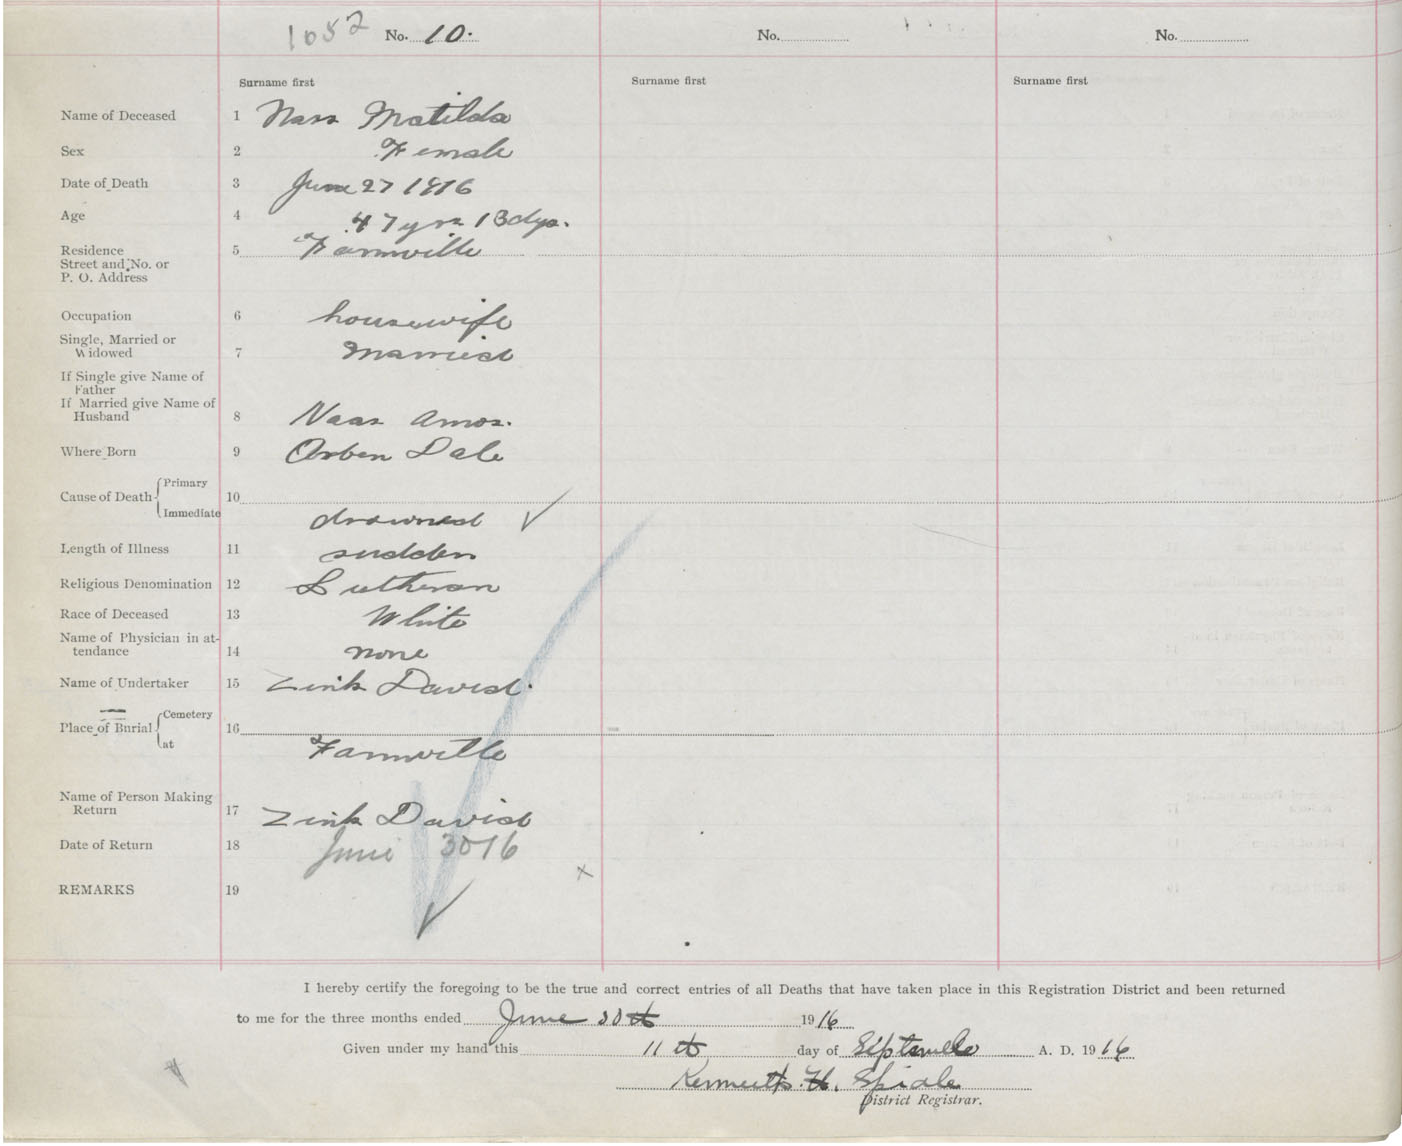 1052 No. 10. No. No.
Surname first Surname first Surname first
Name of Deceased 1 Nass Matilda
Sex 2 Female
Date of Death 3 June 27 1916
Age 4 47 yrs 13 dys.
Residence 5 Farmville
Street and No. or
P. O. Address
Occupation 6 housewife
Single, Married or
Widowed 7 Married
If Single give Name of
Father
If Married give Name of
Husband 8 Naas Amos.
Where Born 9 Dale
Cause of Death Primary 10
Immediate drowned
Length of Illness 11 sudden
Religious Denomination 12 Lutheran
Race of Deceased 13 White
Name of Physician in at-
tendance 14 none
Name of Undertaker 15 Zink David.
Place of Burial Cemetery 16
at Farmville
Name of Person Making
Return 17 Zink David
Date of Return 18 June 30 16
REMARKS 19
I hereby certify the foregoing to be the true and correct entries of all Deaths that have taken place in this Registration District and been returned
to me for the three months ended June 30th 1916
Given under my hand this 11th day of A. D. 1916
Kenneth H. Spidle
District Registrar.